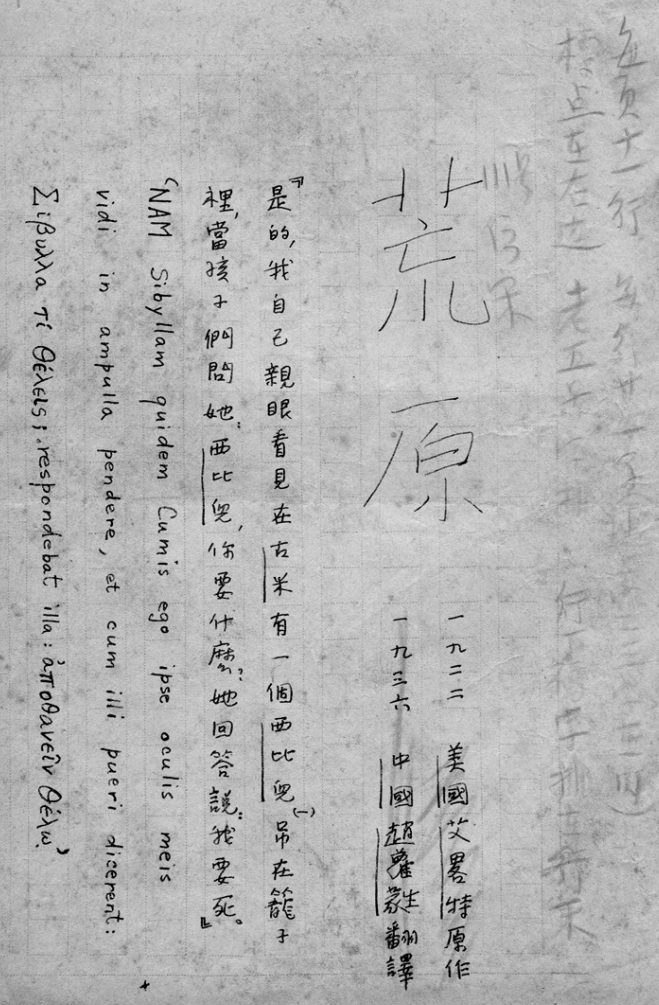 每頁十一行
標点在右边
荒原
一九二二 美國艾畧特原作
一九三六 中國趙蘿蕤翻譯
『是的,我自己親眼看見在古米有一個西比兒(一)吊在籠子
裡,當孩子們問她:西比兒,你要什麼?她回答說:我要死。』
“NAM Sibyllam quidem Cumis ego ipse oculis meis
vidi in ampulla pendere, et cum illi pueri dicerent:
Σιβυλλα τί θέλεις; respondebat illa: ἀποθανεῖν θέλω.”